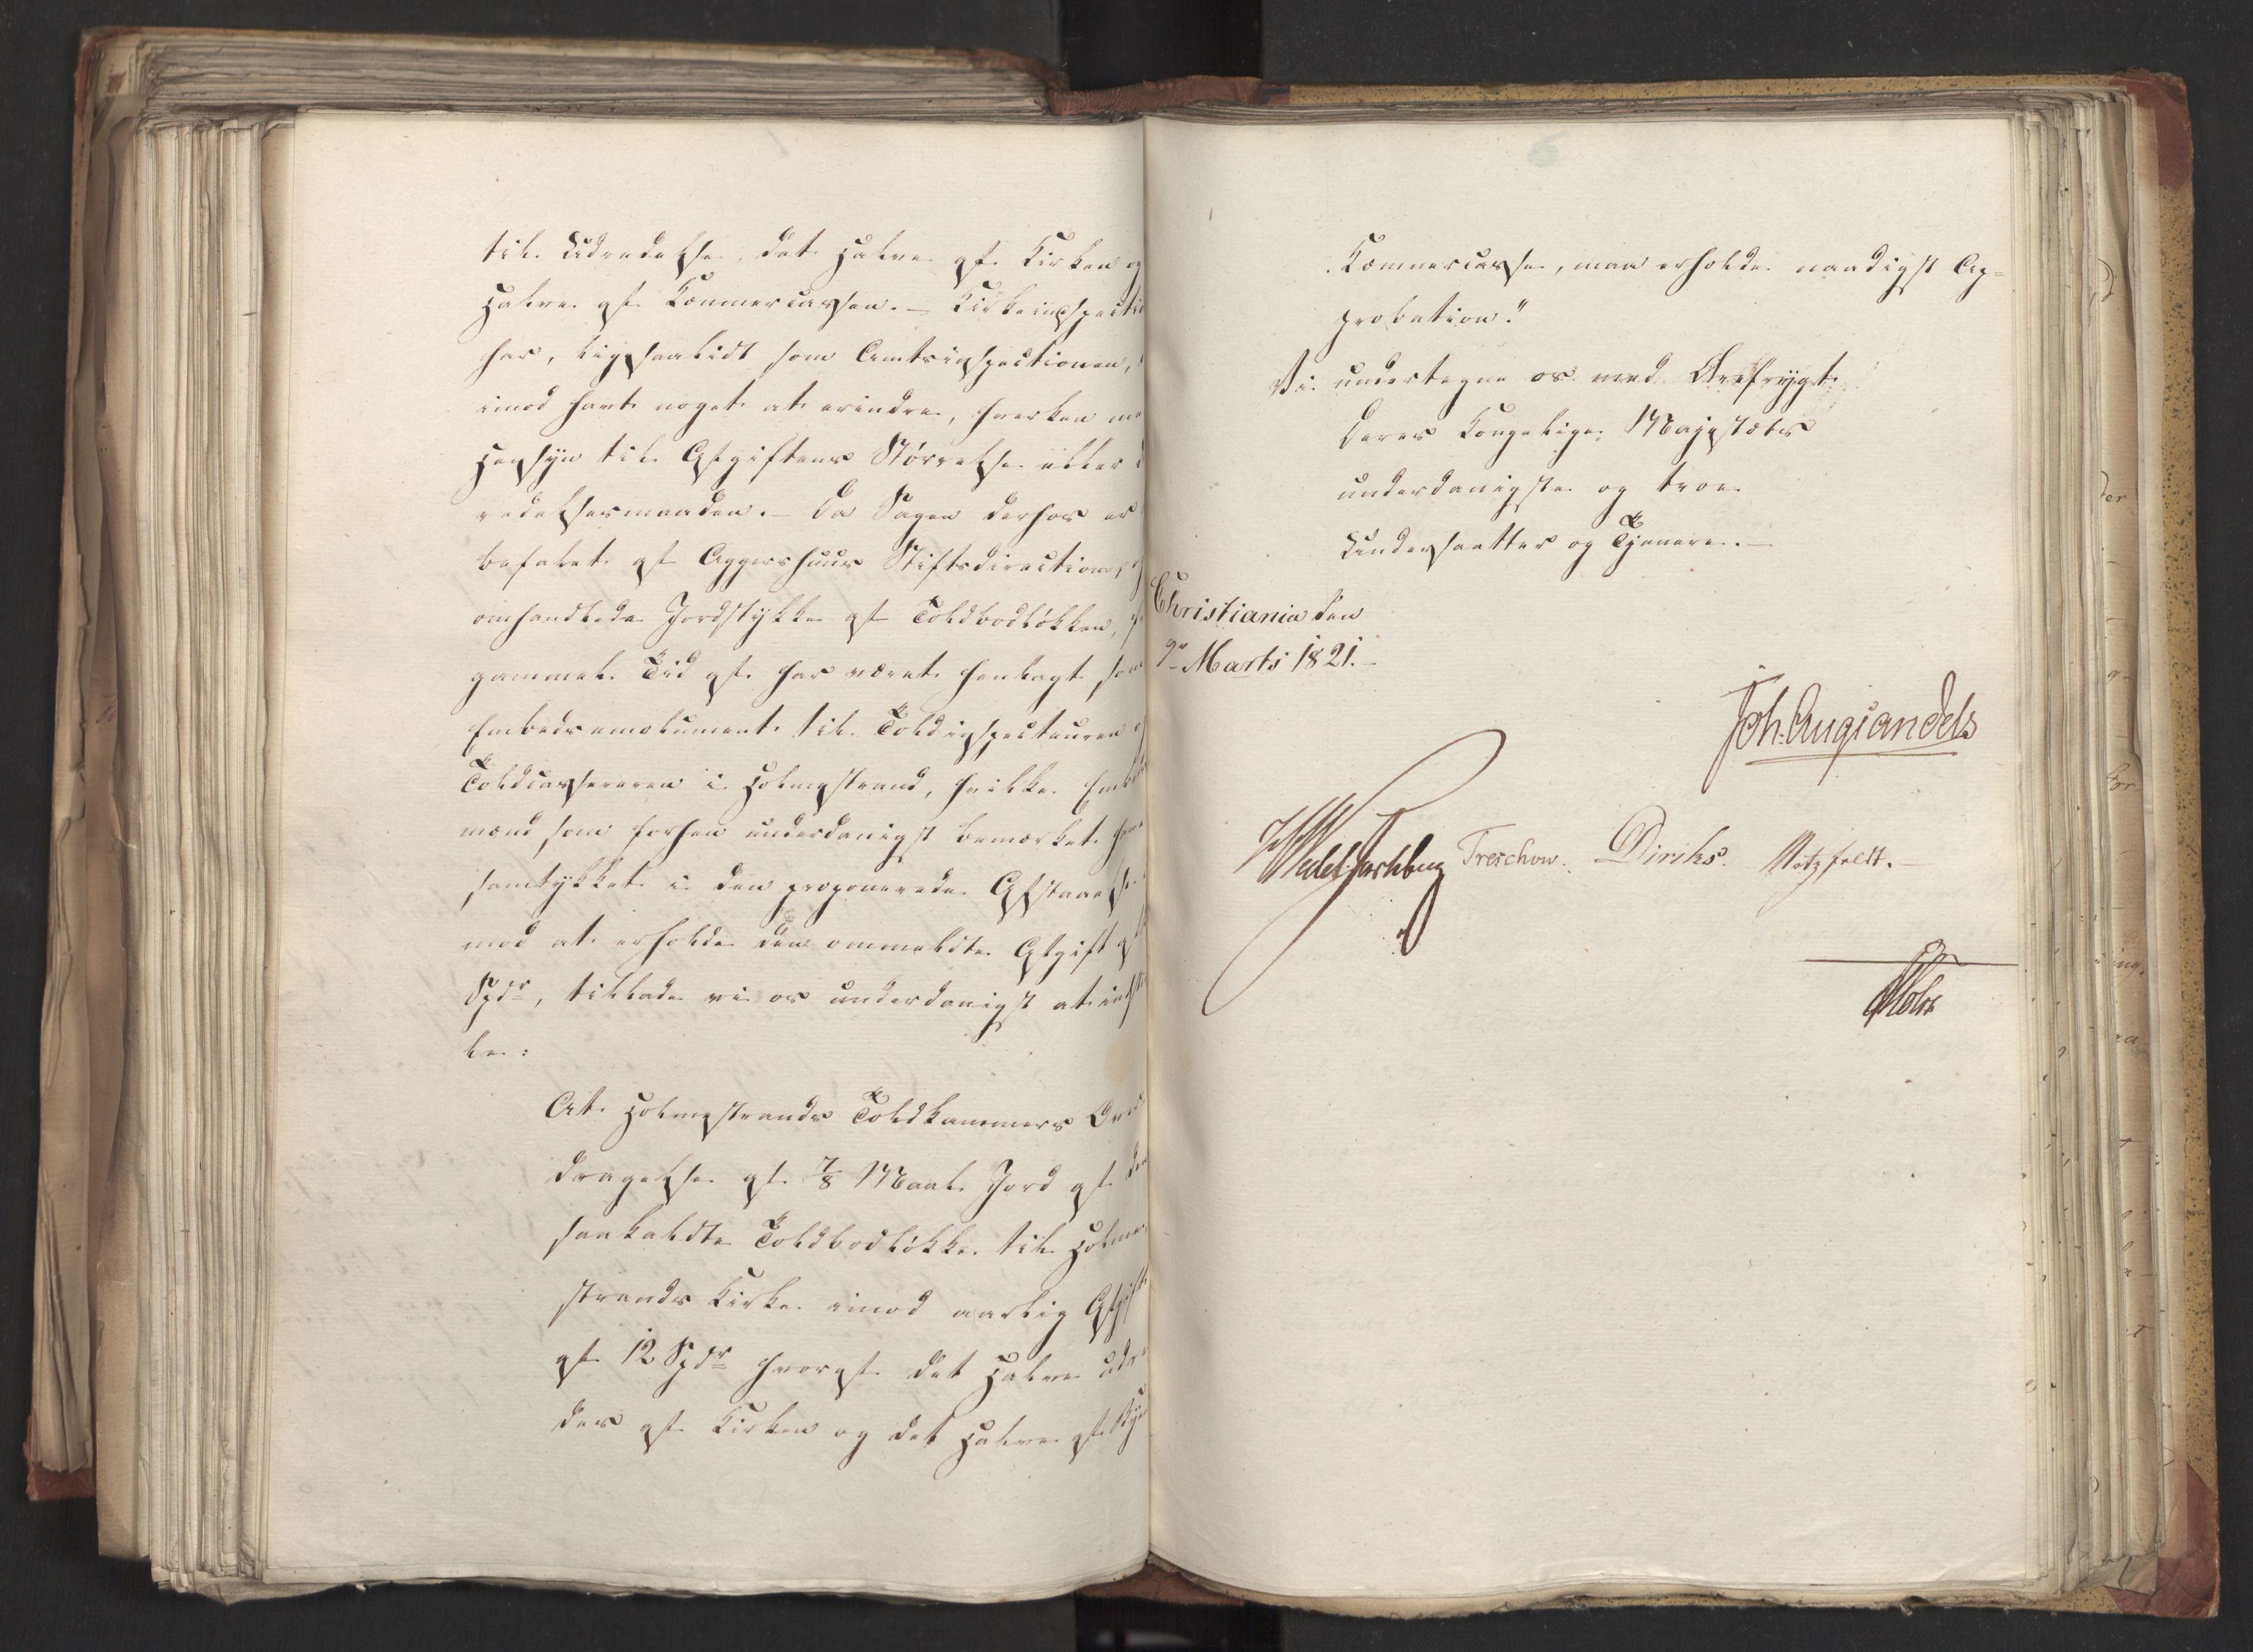 til Udredelse, det halve af Kirken og
halve af Kæmnercassen. – Kirkeinspecti
har, ligesaalidt som Amtsinspectionen,
imod havt noget at erindre, hverken me
Hensyn til Afgiftens Størrelse eller
redelsesmaaden. – Da Sagen derhos er
befalet af Aggershuus Stiftsdirection,
omhandlede Jordstykke af Toldbodløkken,
gammel Tid af har været henlagt som
Embedsemolument til Toldinspecteuren
Toldcassereren i Holmestrand, hvilke Emb
mænd, som forhen underdanigst bemærket
samtykket i den proponerede Afstaaelse
mod at erholde den ommeldte Afgift af
Spdr, tillade vi os underdanigst at indstil
le:
At Holmestrands Toldkammers Over
dragelse af 7/8 Maal Jord af den
saakaldte Toldbodløkke til Holme
strands Kirke imod aarlig Afgift
af 12 Spdr hvoraf det halve udre
des af Kirken og det halve af Bye
Kæmnercasse, maa erholde naadigst Ap=
probation."
Vi undertegne os med Ærefrygt
Deres Kongelige Majestæts
underdanigste og troe
Undersaatter og Tjenere. –
Christiania den
9de Marts 1821. –
Joh. Aug Sandels
HWedel Jarlsberg Treschow. Diriks. Motzfeldt. –
Holst